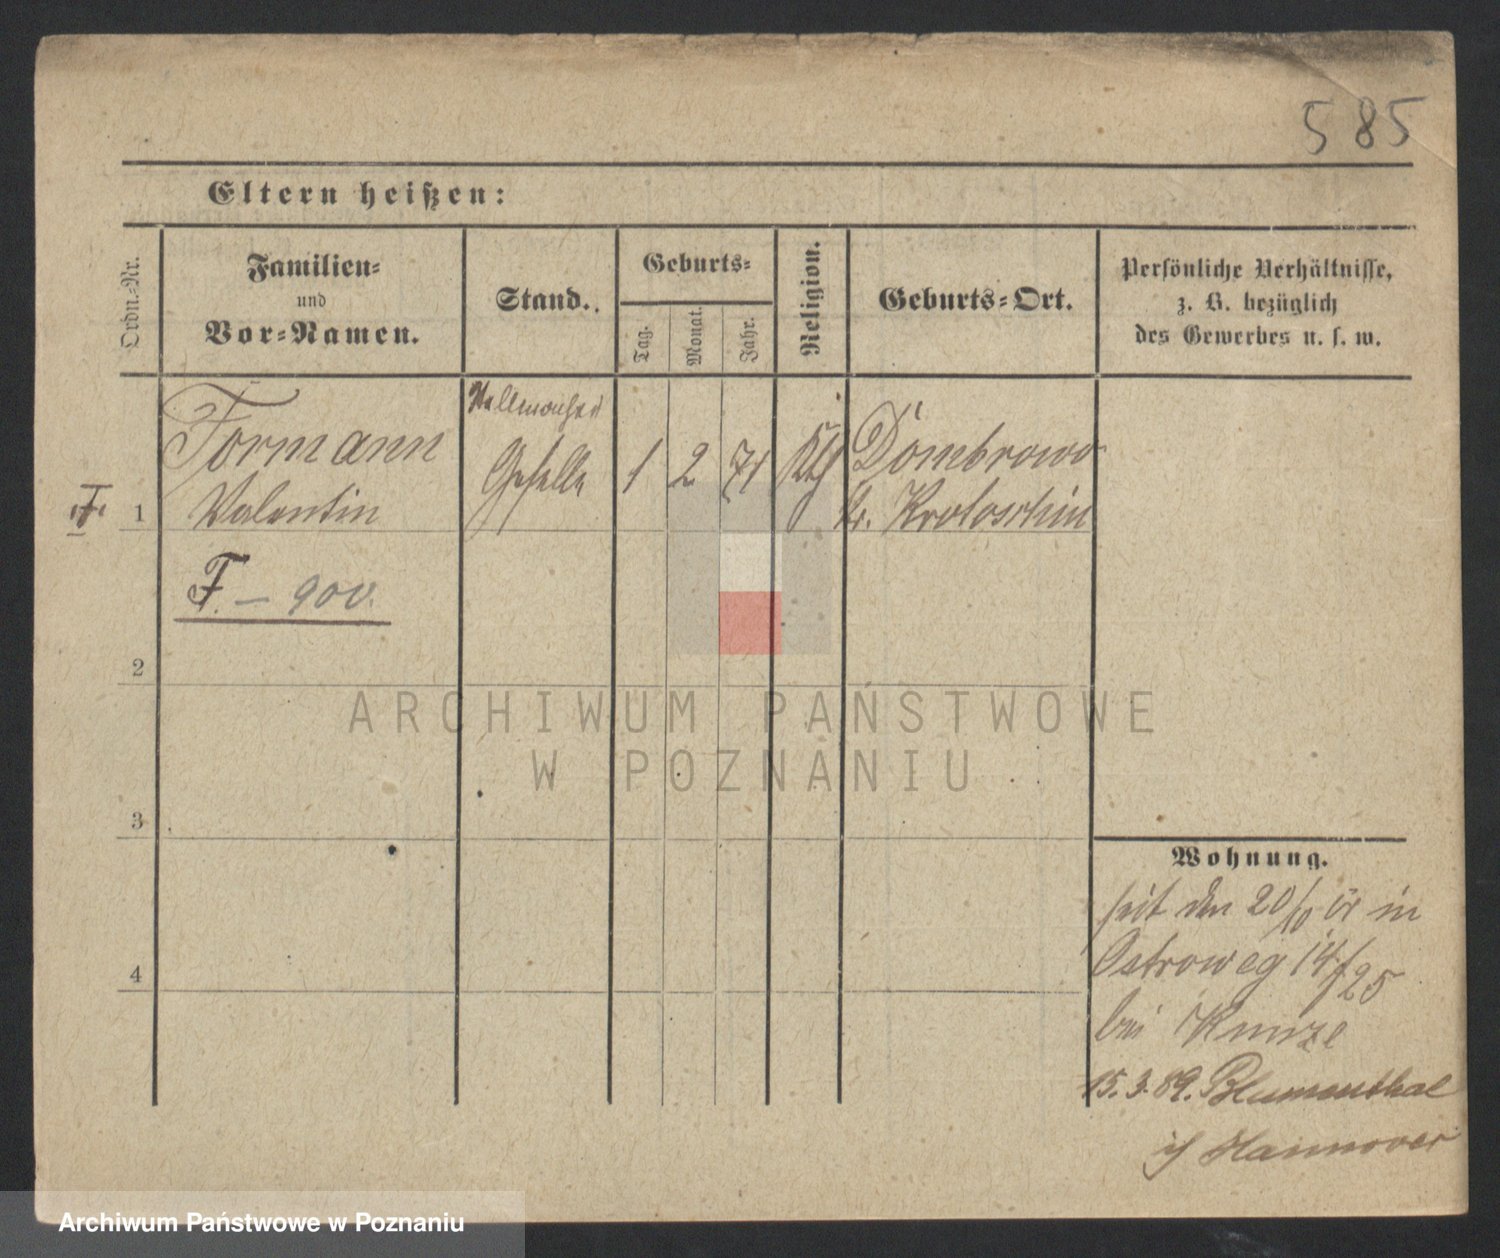 585
Eltern heißen:
Ordn.-Nr.
Familien-
und
Vor-Namen.
Stand.
Geburts-
Tag.
Monat.
Jahr.
Religion.
Geburts-Ort.
Persönliche Verhältnisse,
z. B. bezüglich
des Gewerbes u. s. w.
1
Formann
Valentin
Geselle
1
2
71
Kth
Dombrowo
Kr. Krotoschin
F. — 900.
2
3
4
ARCHIWUM PAŃSTWOWE
W POZNANIU
Wohnung.
seit den 20/10 in
Ostroweg 14/25
bei Kunze
15.3.89. Blumenthal
Hannover
Archiwum Państwowe w Poznaniu